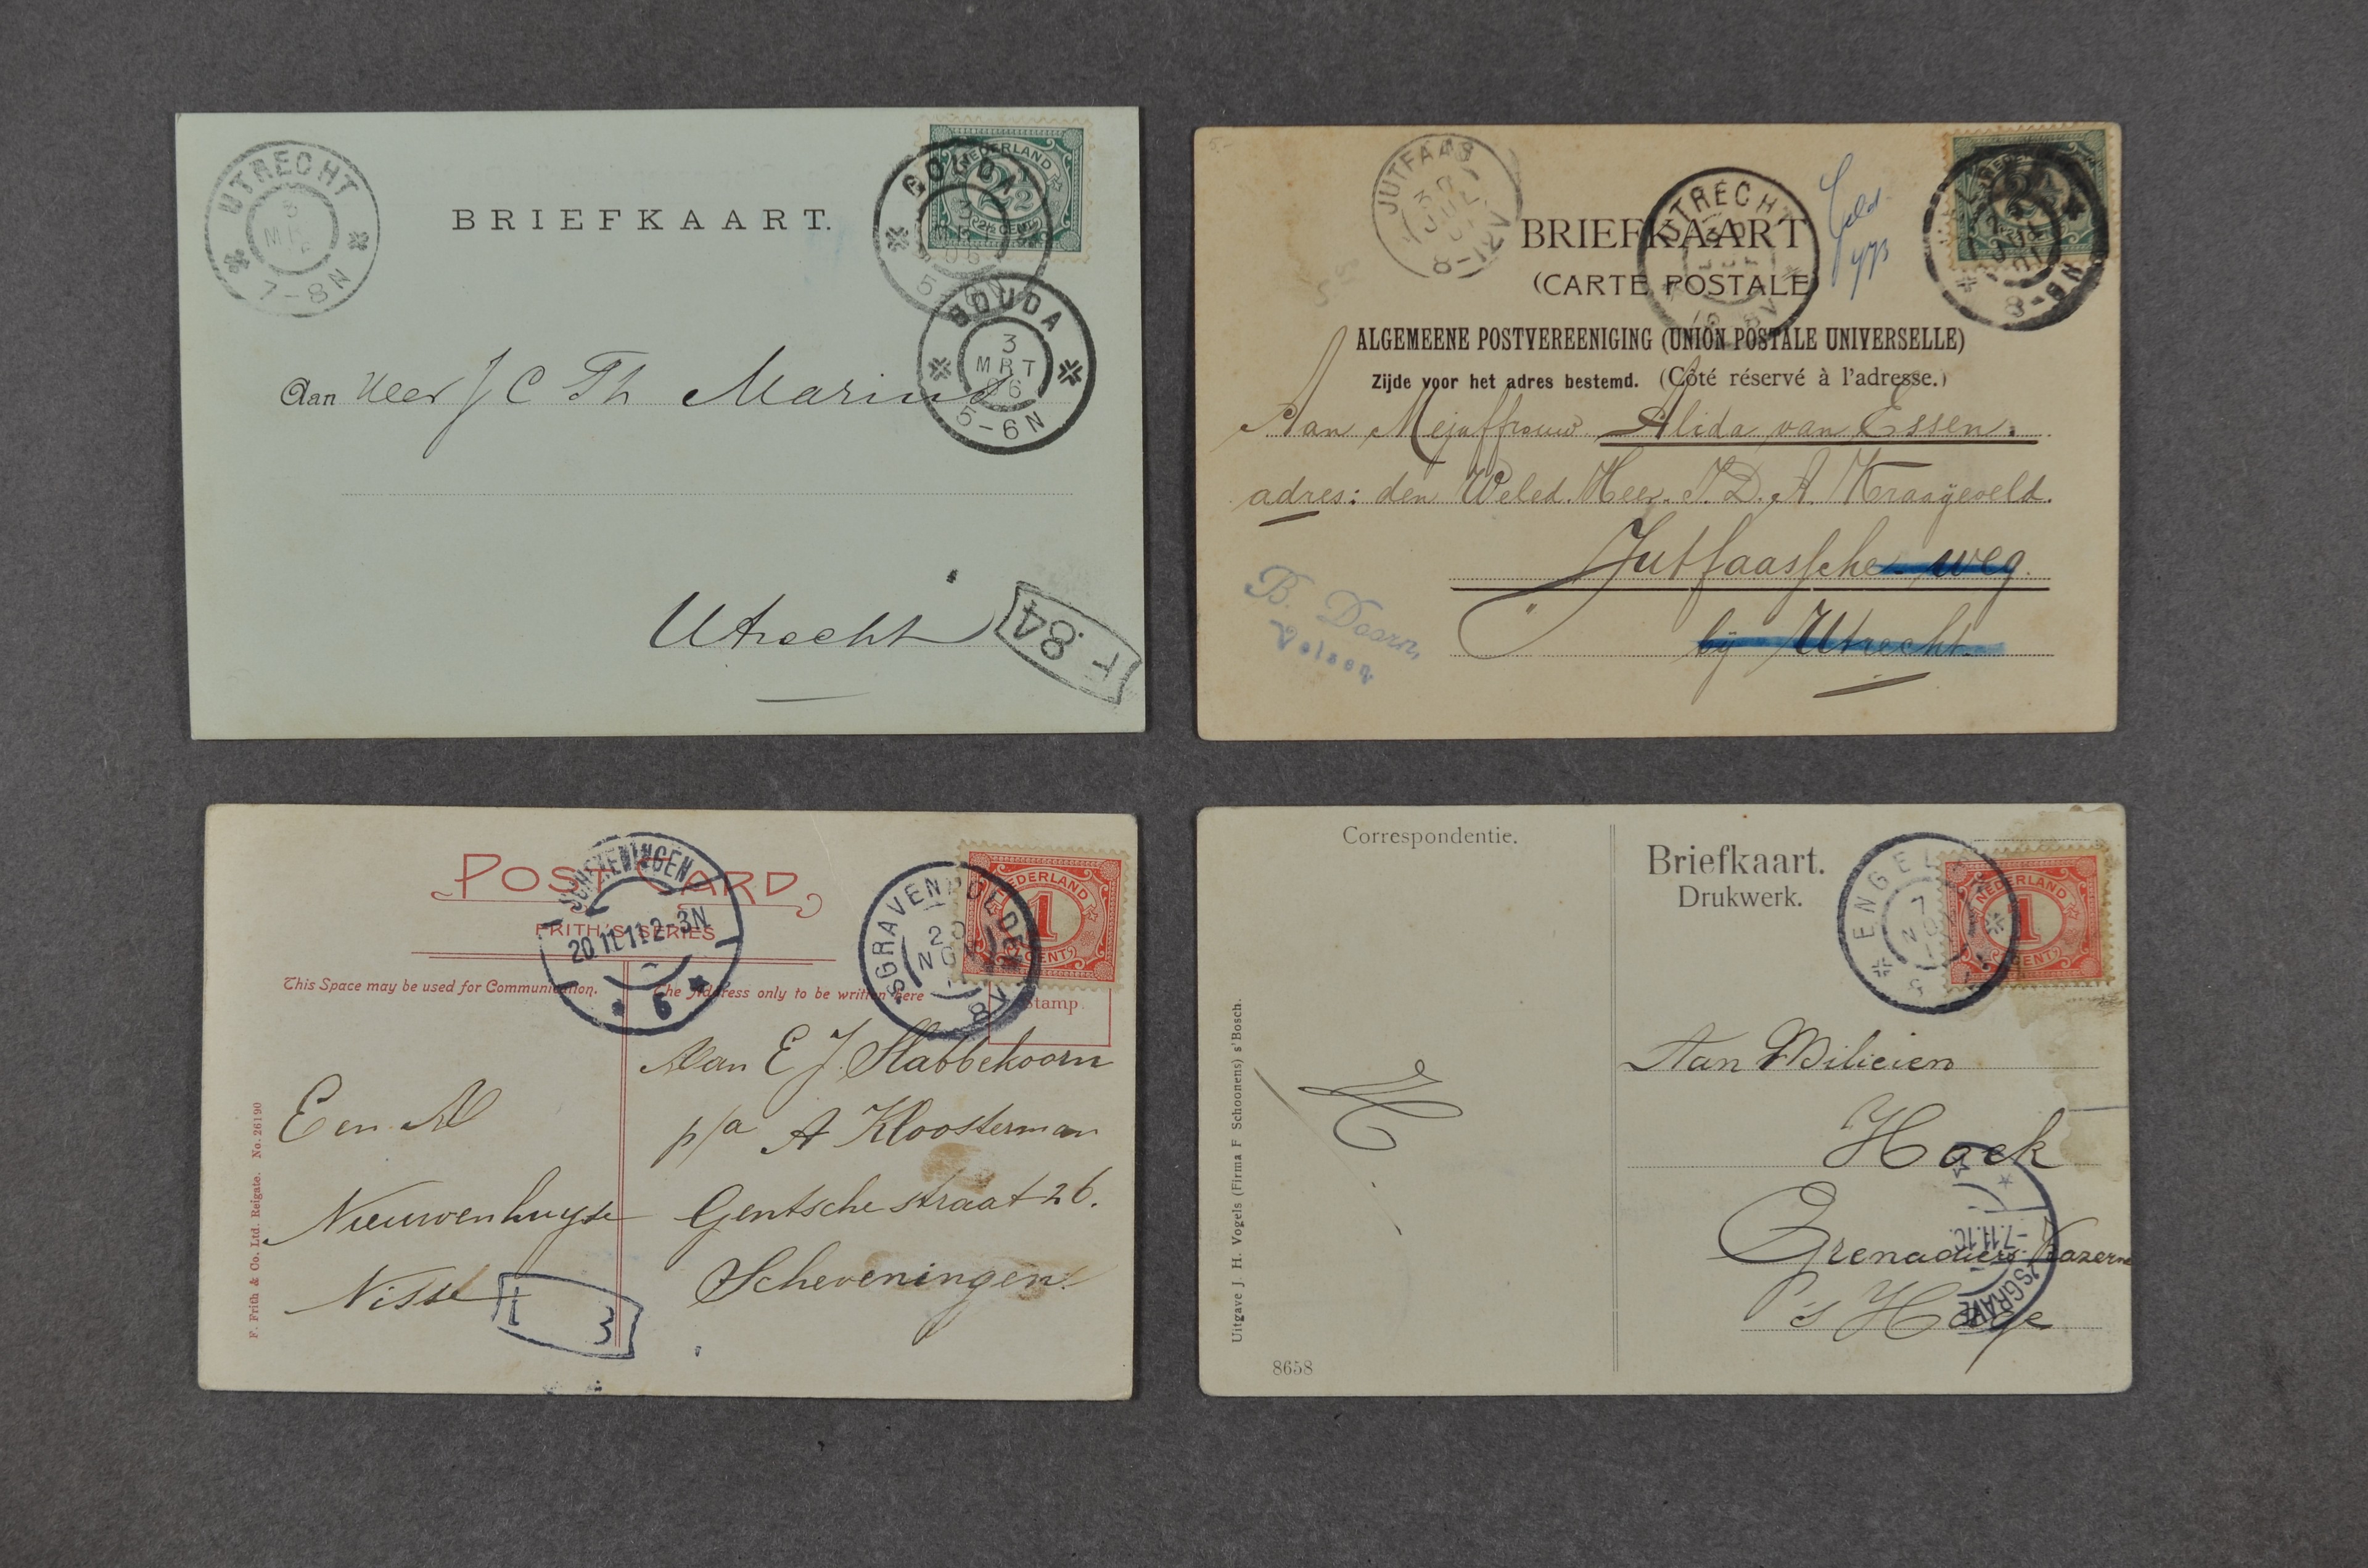 UTRECHT
3
MRT
7-8N
BRIEFKAART.
NEDERLAND
2½
2½ CENT
GOUDA
3
MRT
06
GOUDA
3
MRT
06
5-6N
Aan Heer J C Th Marinus
Utrecht
F.84
JUTFAAS
8-12V
UTRECHT
BRIEFKAART
(CARTE POSTALE)
8-9N
ALGEMEENE POSTVEREENIGING (UNION POSTALE UNIVERSELLE)
Zijde voor het adres bestemd. (Côté réservé à l'adresse.)
Aan Mejuffrouw Alida van Essen.
adres: den Weled. Heer. J. D. A. Kraayeveld.
Jutfaassche weg.
bij Utrecht.
B. Doorn,
Velsen
POST CARD
FRITH'S SERIES
SCHEVENINGEN
20.11.11.2-3N
6
'SGRAVENPOLDER
20
NOV
NEDERLAND
1
CENT
This Space may be used for Communication.
The Address only to be written here
Stamp.
Aan E J Slabbekoorn
p/a A Kloosterman
Gentsche straat 26.
Scheveningen.
Een M
Nieuwenhuyse
Nisse
1 3
F. Frith & Co. Ltd. Reigate. No. 26190
Correspondentie.
Briefkaart.
Drukwerk.
ENGELEN
7
NOV
NEDERLAND
1
CENT
Aan Milicien
Hoek
Grenadiers Kazerne
's Hage
-7.11.10.
'SGRAVE
Uitgave J. H. Vogels (Firma F Schoonens) s'Bosch.
8658